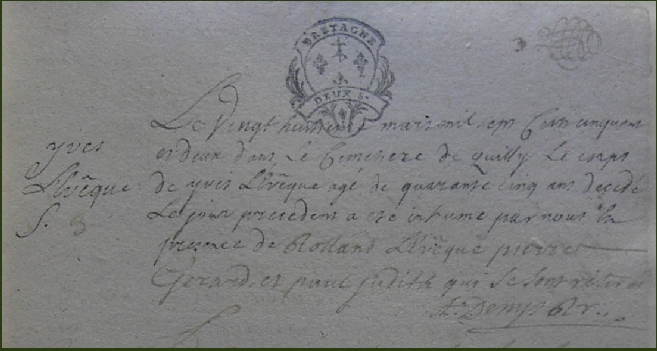 BRETAGNE
DEUX S.
3
Le Vingt huitieme mars mil sept Cent cinquante
et deux dans Le Cimetiere de quilly Le corps
yves
Llvêque
S.
de yves Llvêque agé de quarante cinq ans decedé
Le jour precedent a ete inhumé par nous En
presence de Rolland Llvêque pierre
Gerard et paul judith qui Se Sont retirés